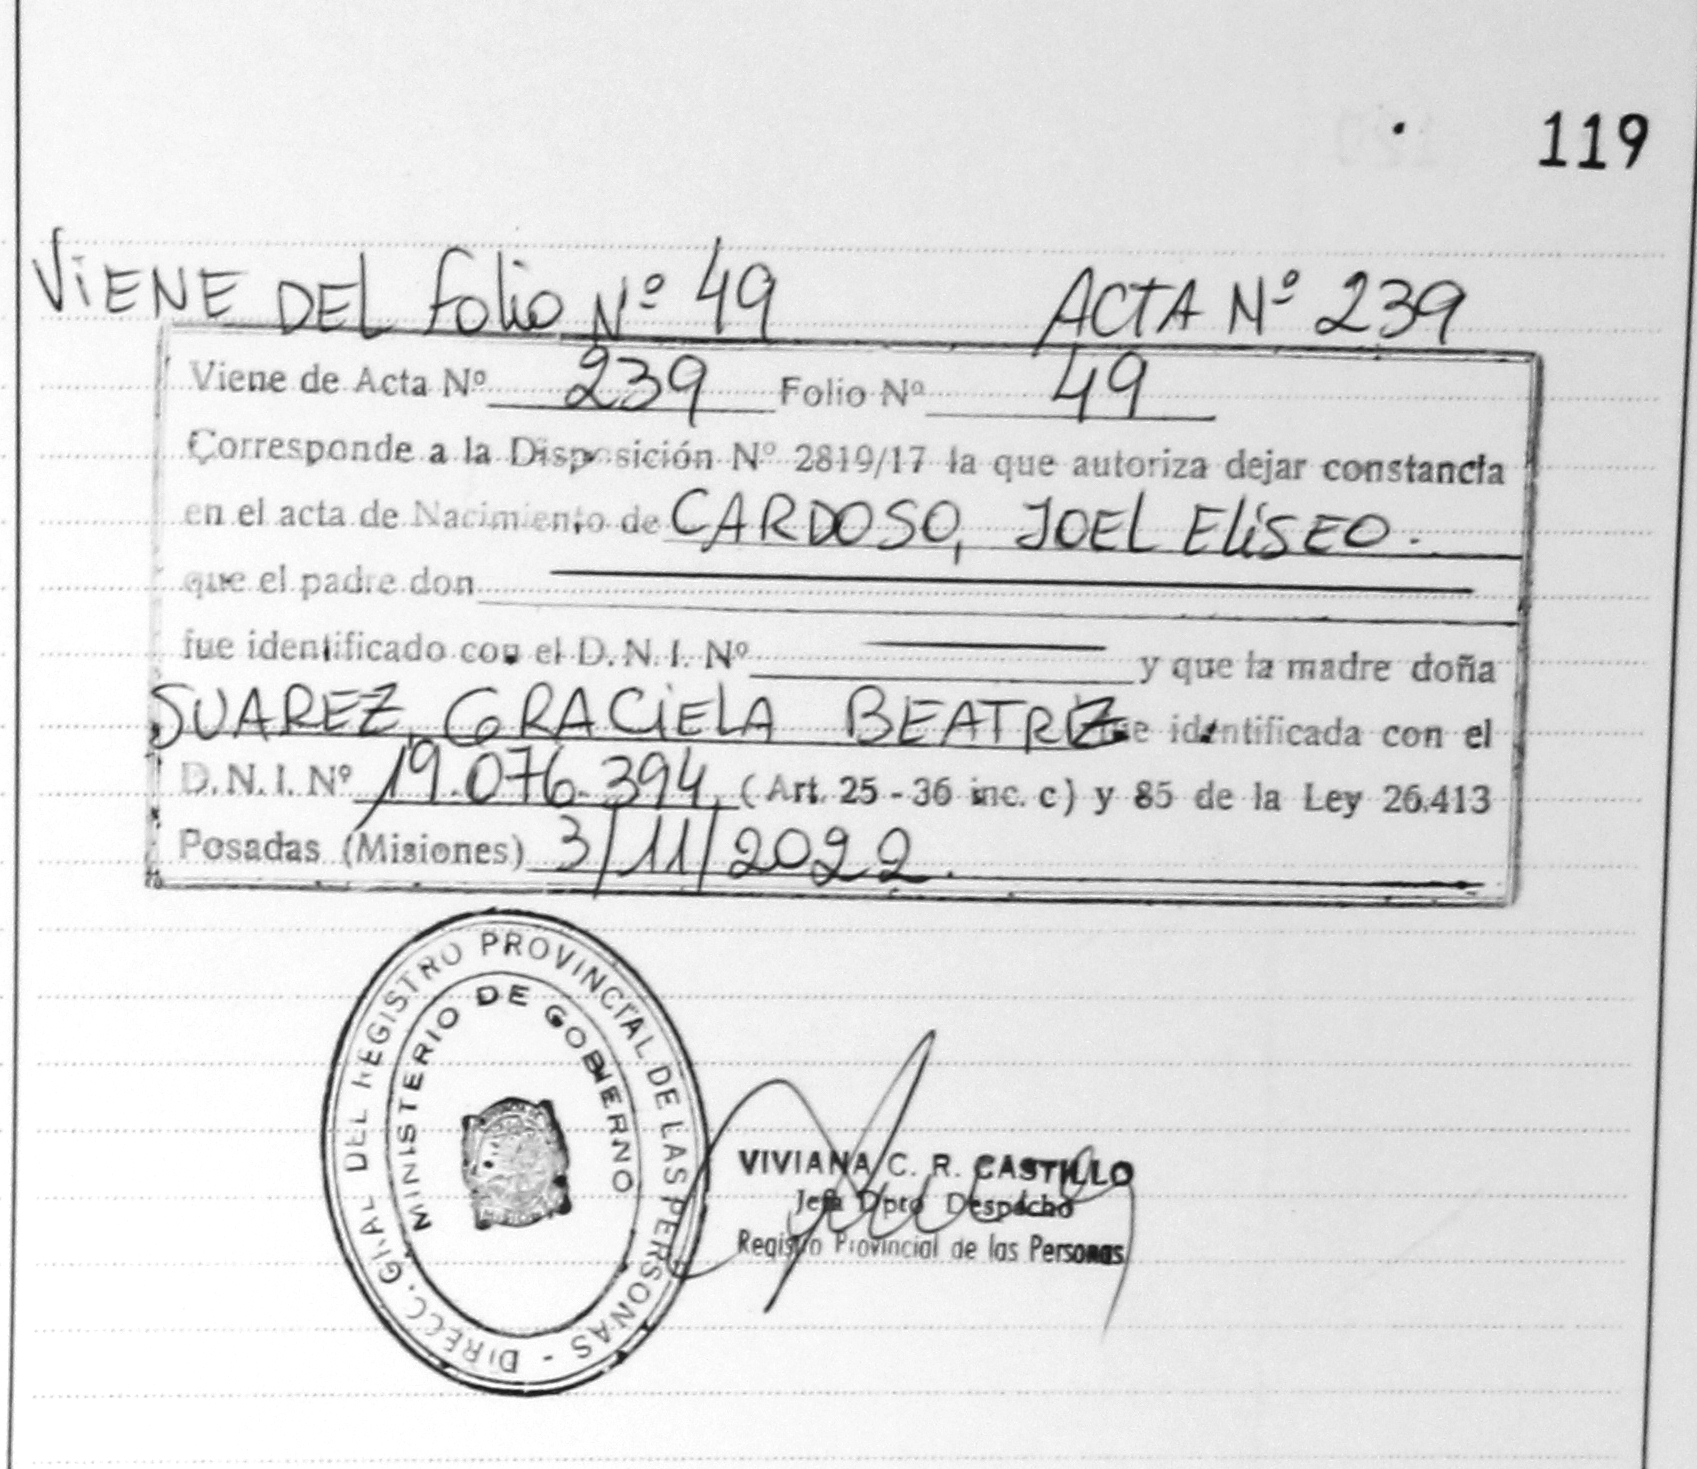 119
VIENE DEL folio Nº 49 ACTA Nº 239
Viene de Acta Nº 239 Folio Nº 49
Corresponde a la Disposición Nº 2819/17 la que autoriza dejar constancia
en el acta de Nacimiento de CARDOSO, JOEL ELISEO.
que el padre don
fue identificado con el D.N.I. Nº y que la madre doña
SUAREZ, GRACIELA BEATRIZ fue identificada con el
D.N.I. Nº 19.076.394, (Art. 25 - 36 inc. c) y 85 de la Ley 26.413
Posadas (Misiones) 3/11/2022.
DIRECC. GRAL DEL REGISTRO PROVINCIAL DE LAS PERSONAS -
MINISTERIO DE GOBIERNO
VIVIANA C. R. CASTILLO
Jefa Dpto Despacho
Registro Provincial de las Personas